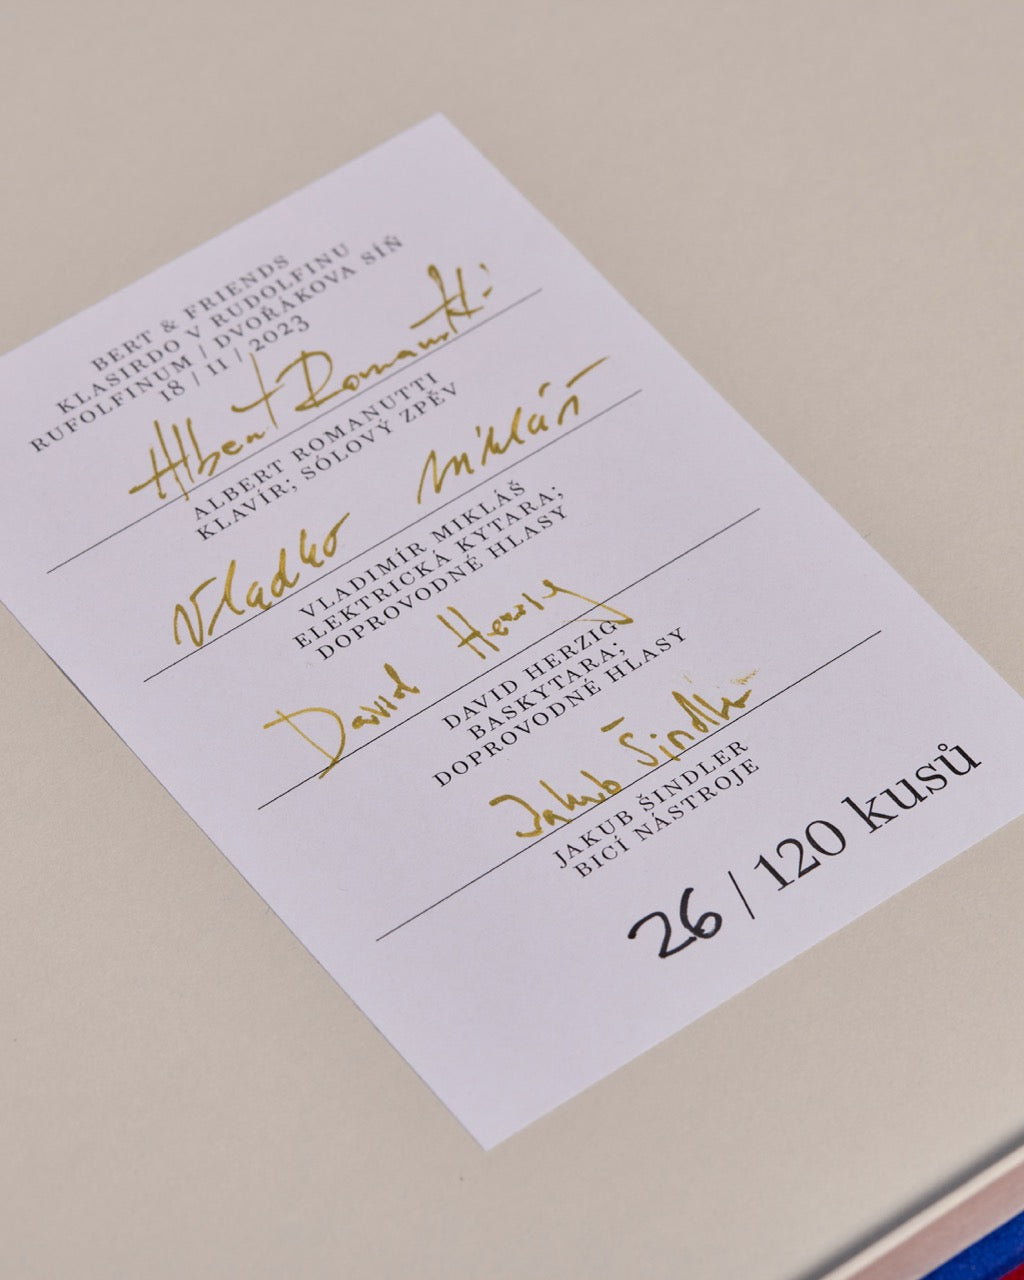 BERT & FRIENDS
KLASIRDO V RUDOLFINU
RUFOLFINUM / DVOŘÁKOVA SÍŇ
18 / 11 / 2023
Albert Romanutti
ALBERT ROMANUTTI
KLAVÍR; SÓLOVÝ ZPĚV
Vladko Mikláš
VLADIMÍR MIKLÁŠ
ELEKTRICKÁ KYTARA;
DOPROVODNÉ HLASY
David Herzig
DAVID HERZIG
BASKYTARA;
DOPROVODNÉ HLASY
Jakub Šindler
JAKUB ŠINDLER
BICÍ NÁSTROJE
26 / 120 kusů